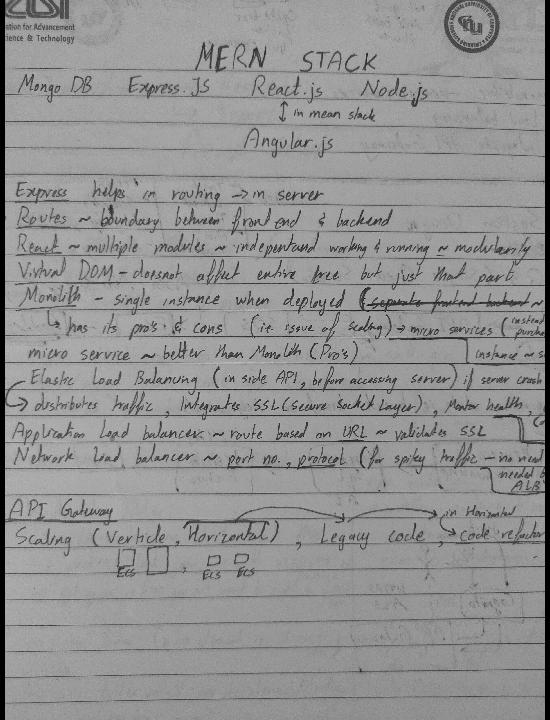 ation for Advancement
ience & Technology
MERN STACK
Mongo DB Express.JS React.js Node.js
↕ in mean stack
Angular.js
Express helps in routing → in server
Routes ~ boundary between frontend & backend
React ~ multiple modules ~ independand working & running ~ modularity
Virtual DOM - doesnot affect entire tree but just that part
Monolith - single instance when deployed (separate frontend backend ~
↳ has its pro's & cons (i.e issue of scaling) → micro services (instead
micro service ~ better than Monolith (Pro's) instance ~ s
Elastic Load Balancing (in side API, before accessing server) if server crash
↳ distributes traffic, Integrates SSL (Secure Socket Layer), Monitor health,
Application Load balancer ~ route based on URL ~ validates SSL
Network Load balancer ~ port no., protocol (for spiky traffic - no need
needed b
ALB
API Gateway
→ in Horizontal
Scaling (Verticle, Horizontal), Legacy code, code refactor
ECS , ECS ECS